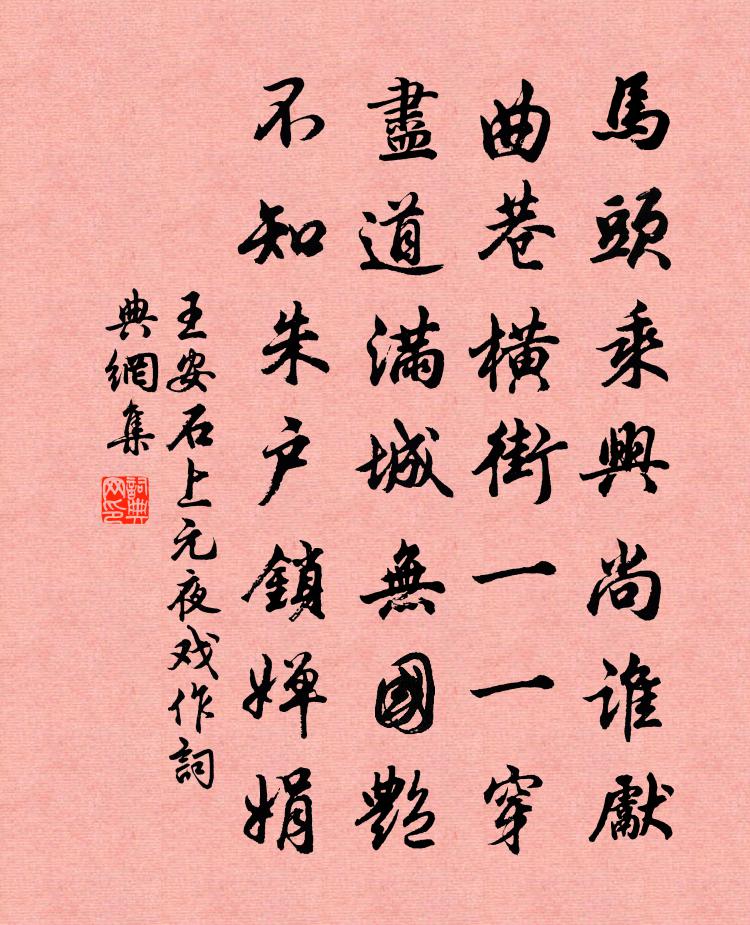 馬頭乘興尚誰獻
曲巷橫街一一穿
盡道滿城無國艷
不知朱户鎖嬋娟
王安石上元夜戏作詞
典網集
詞典
网印